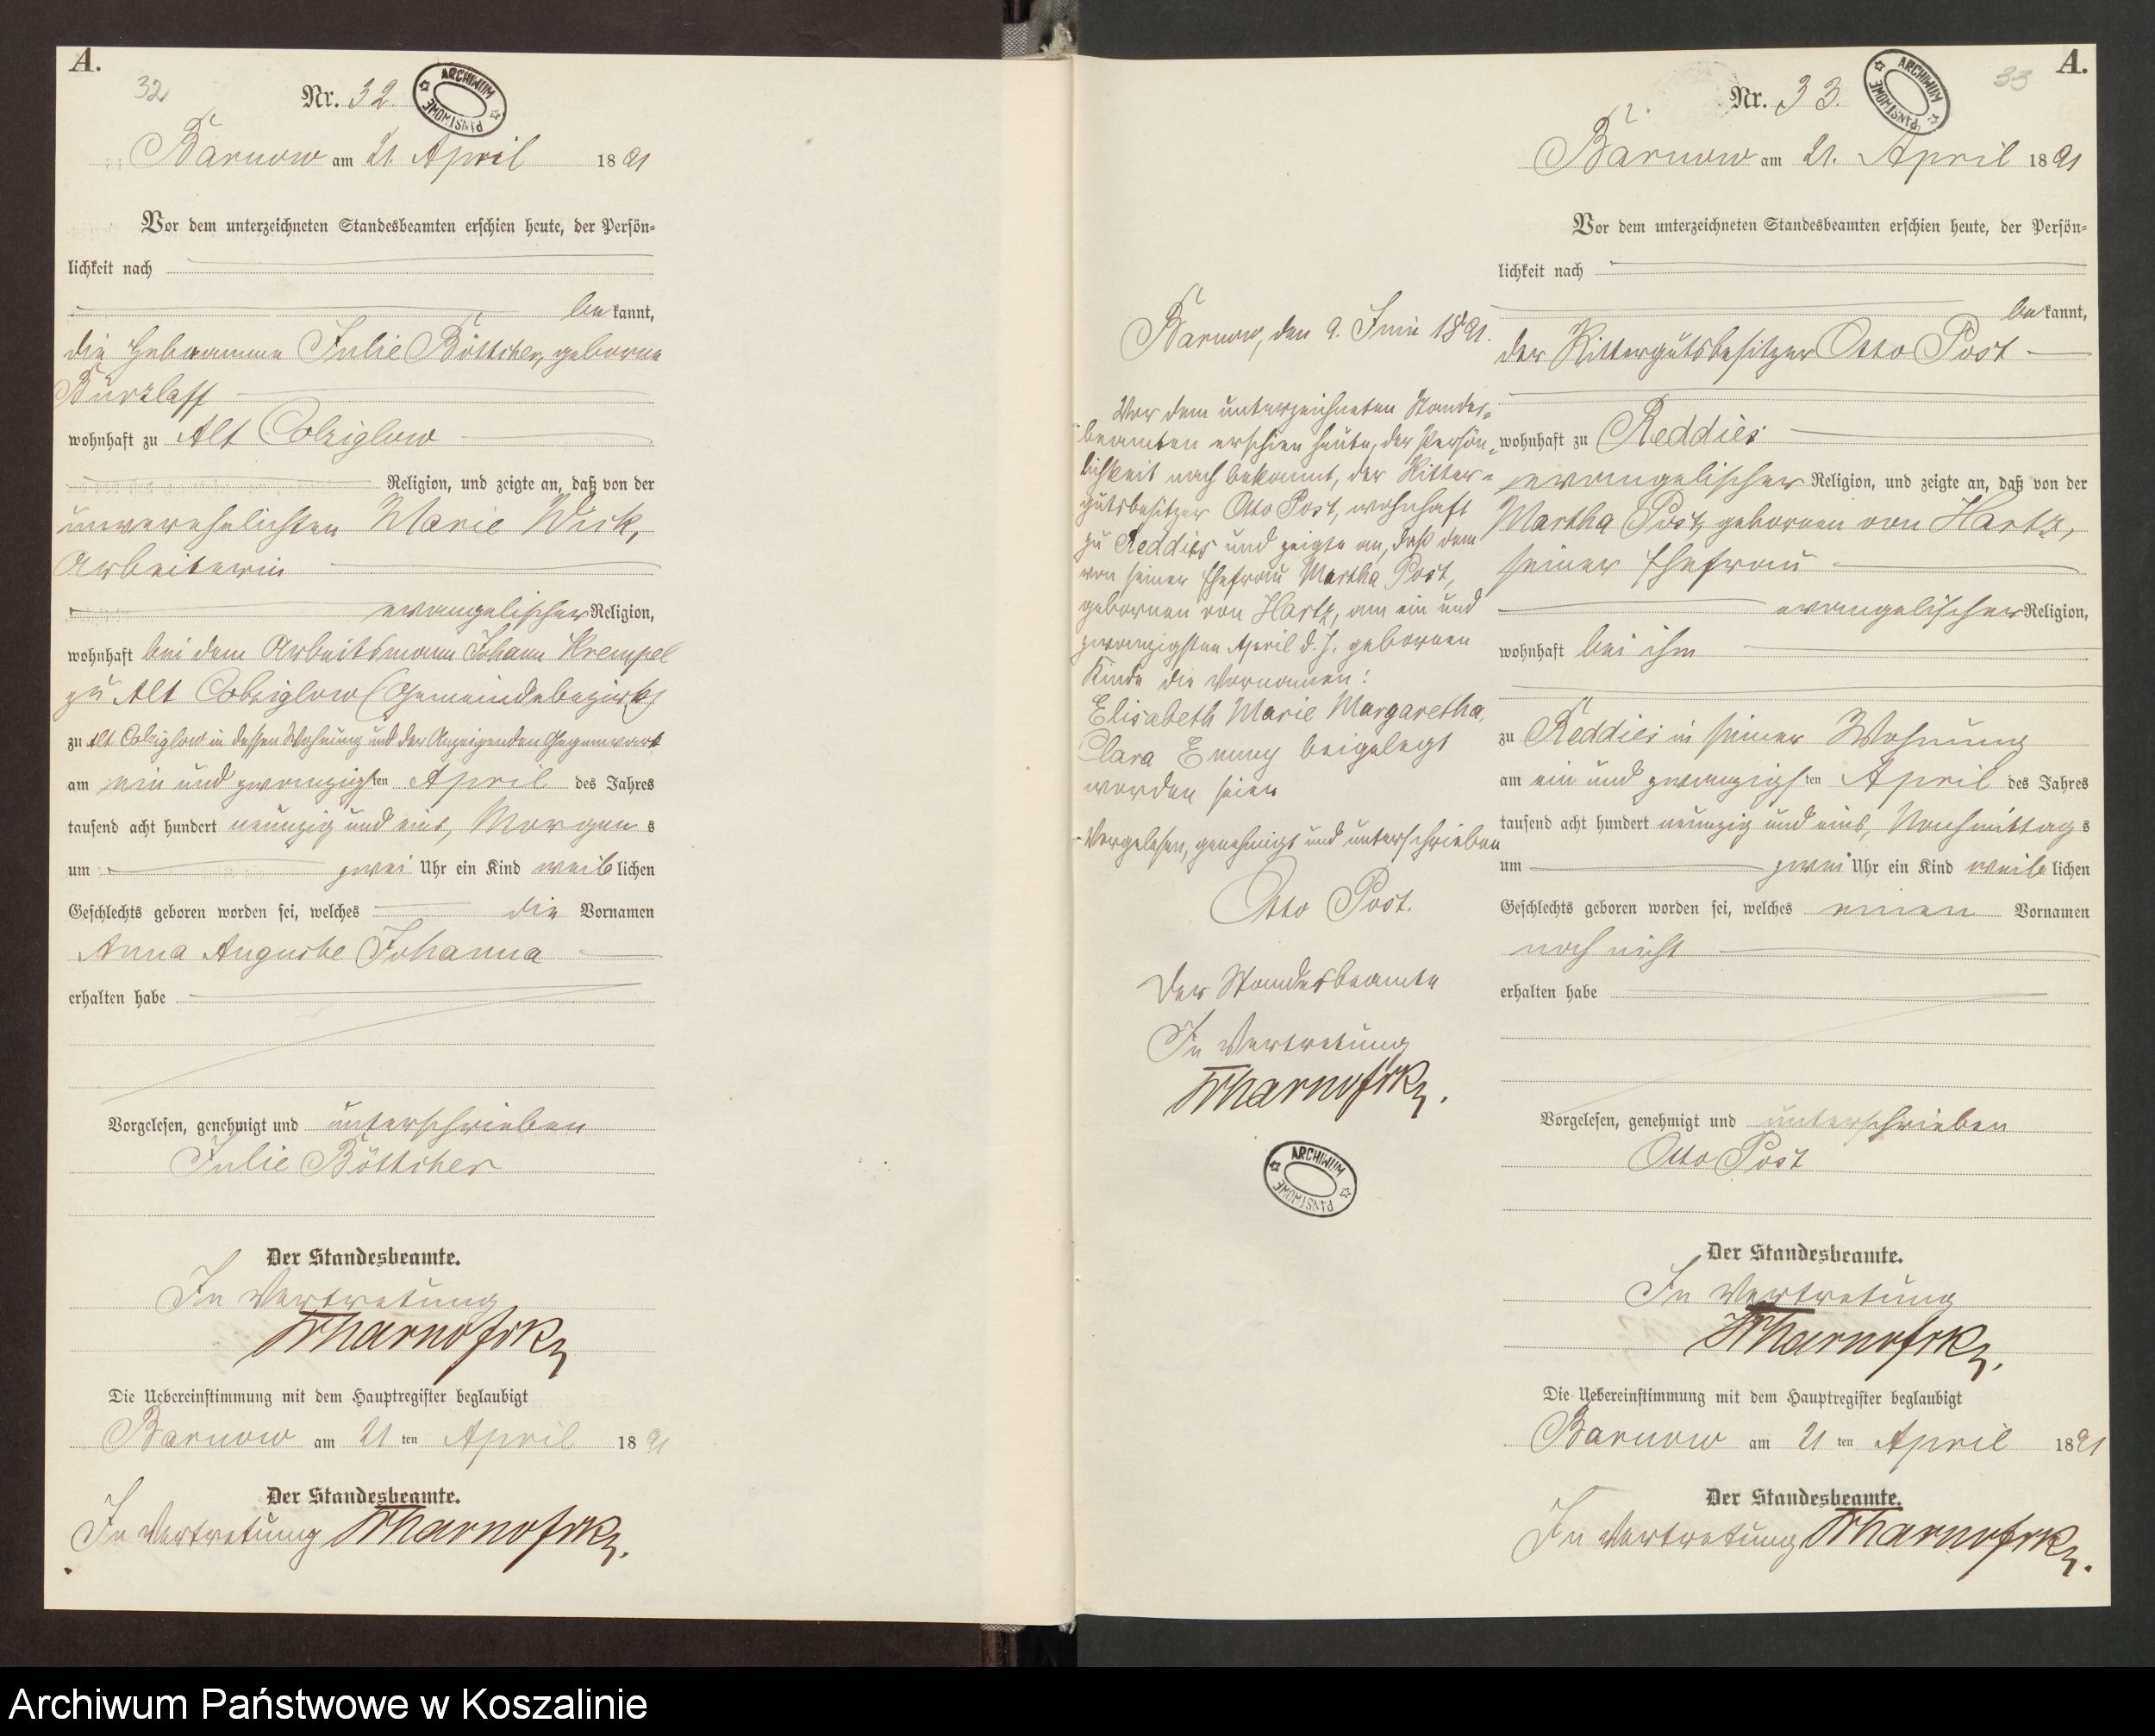 A.
32
Nr. 32.
ARCHIWUM PAŃSTWOWE
Barnow am 21. April 1891
Vor dem unterzeichneten Standesbeamten erschien heute, der Persön-
lichkeit nach
bekannt,
die Hebamme Julie Böttcher, geborne
Bürzlaff
wohnhaft zu Alt Colziglow
Religion, und zeigte an, daß von der
unverehelichten Marie Wick,
Arbeiterin
evangelischer Religion,
wohnhaft bei dem Arbeitsmann Johann Krempel
zu Alt Colziglow (Gemeindebezirk)
zu Alt Colziglow in dessen Wohnung und der Anzeigenden Gegenwart
am ein und zwanzigsten April des Jahres
tausend acht hundert neunzig und eins, Morgens
um zwei Uhr ein Kind weiblichen
Geschlechts geboren worden sei, welches die Vornamen
Anna Auguste Johanna
erhalten habe
Vorgelesen, genehmigt und unterschrieben
Julie Böttcher
Der Standesbeamte.
In Vertretung
Die Uebereinstimmung mit dem Hauptregister beglaubigt
Barnow am 21ten April 1891
Der Standesbeamte.
In Vertretung
Barnow, den 9. Juni 1891.
Vor dem unterzeichneten Standes-
beamten erschien heute, der Persön-
lichkeit nach bekannt, der Ritter-
gutsbesitzer Otto Post, wohnhaft
zu Reddies und zeigte an, daß dem
von seiner Ehefrau Martha Post,
gebornen von Hartz, am ein und
zwanzigsten April d. J. gebornen
Kinde die Vornamen:
Elisabeth Marie Margaretha
Clara Emmy beigelegt
worden seien
Vorgelesen, genehmigt und unterschrieben
Otto Post.
Der Standesbeamte
In Vertretung
ARCHIWUM PAŃSTWOWE
A.
33
Nr. 33.
ARCHIWUM PAŃSTWOWE
Barnow am 21. April 1891
Vor dem unterzeichneten Standesbeamten erschien heute, der Persön-
lichkeit nach
bekannt,
der Rittergutsbesitzer Otto Post
wohnhaft zu Reddies
evangelischer Religion, und zeigte an, daß von der
Martha Post, gebornen von Hartz,
seiner Ehefrau
evangelischer Religion,
wohnhaft bei ihm
zu Reddies in seiner Wohnung
am ein und zwanzigsten April des Jahres
tausend acht hundert neunzig und eins, Nachmittags
um zwei Uhr ein Kind weiblichen
Geschlechts geboren worden sei, welches einen Vornamen
noch nicht
erhalten habe
Vorgelesen, genehmigt und unterschrieben
Otto Post
Der Standesbeamte.
In Vertretung
Die Uebereinstimmung mit dem Hauptregister beglaubigt
Barnow am 21ten April 1891
Der Standesbeamte.
In Vertretung
Archiwum Państwowe w Koszalinie